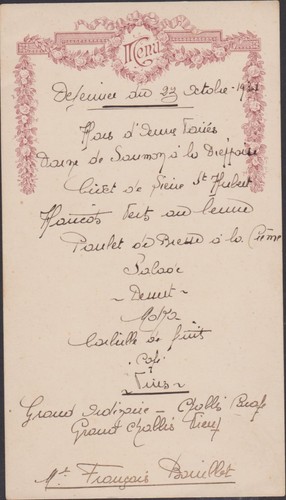 Menu
Déjeuner du 23 Octobre 1921
Hors d'Œuvre Variés
Darne de Saumon à la Dieppoise
Civet de Lièvre St Hubert
Haricots Verts au beurre
Poulet de Bresse à la Crème
Salade
Dessert
Moka
Corbeille de fruits
Café
Vins
Grand Ordinaire - Chablis
Grand Chablis Vieux
Mr François Bouillet